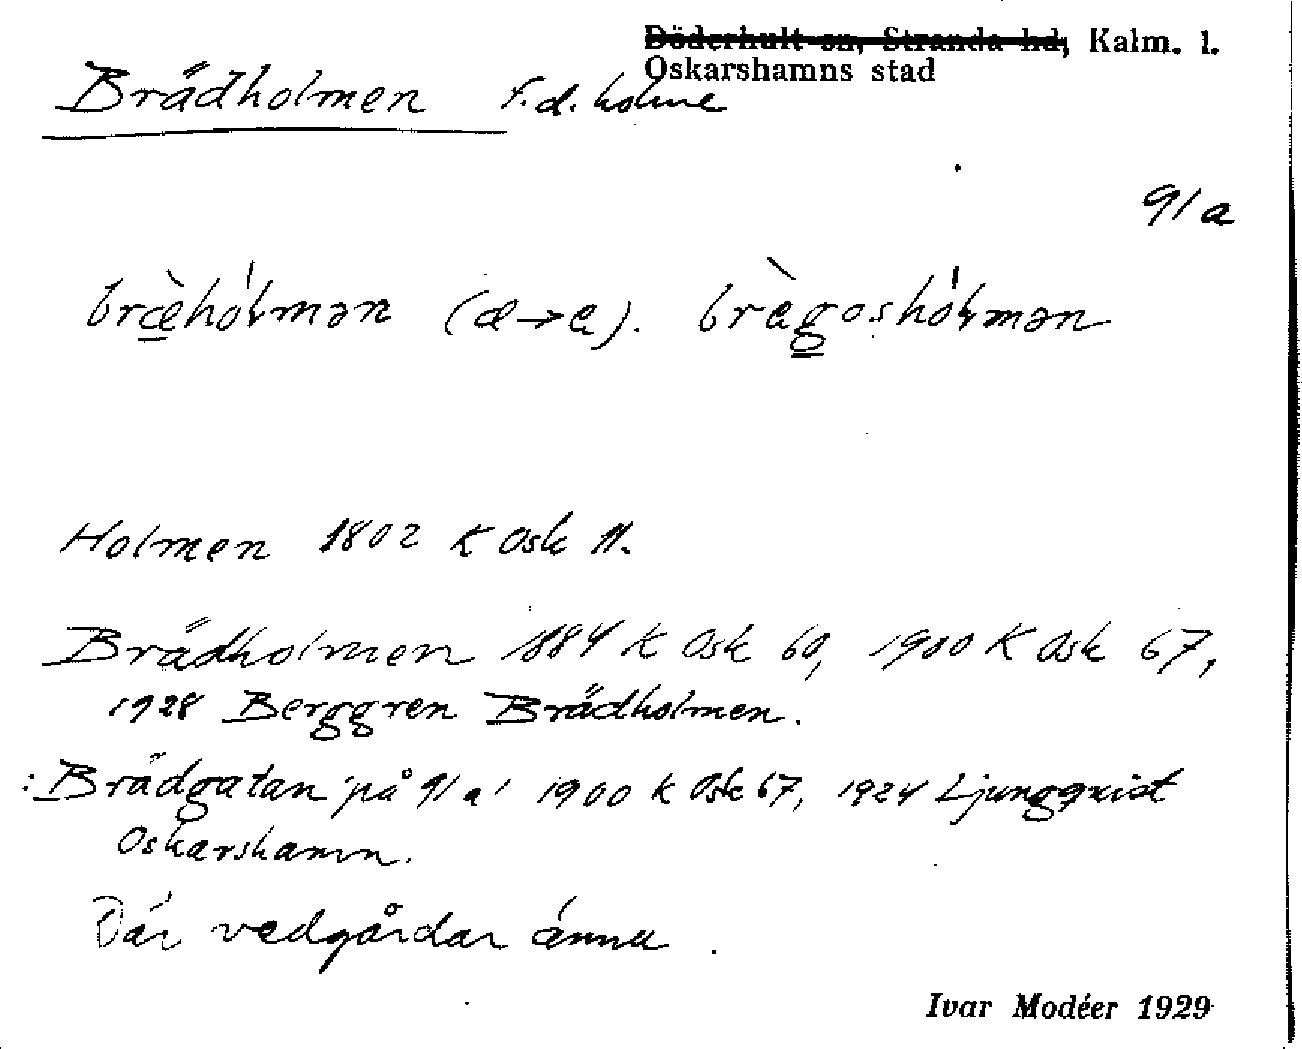 Döderhult sn, Stranda hd, Kalm. l.
Oskarshamns stad
Brädholmen f.d. holme
91a
bræ̀hól̵mən (æ→e). brègoshól̵mən
Holmen 1802 K Osk 11.
Brädholmen 1884 K Osk 60, 1900 K Osk 67,
1928 Berggren Brädholmen.
: Brädgatan 'på 91a' 1900 K Osk 67, 1924 Ljungqvist
Oskarshamn.
Där vedgårdar ännu.
Ivar Modéer 1929